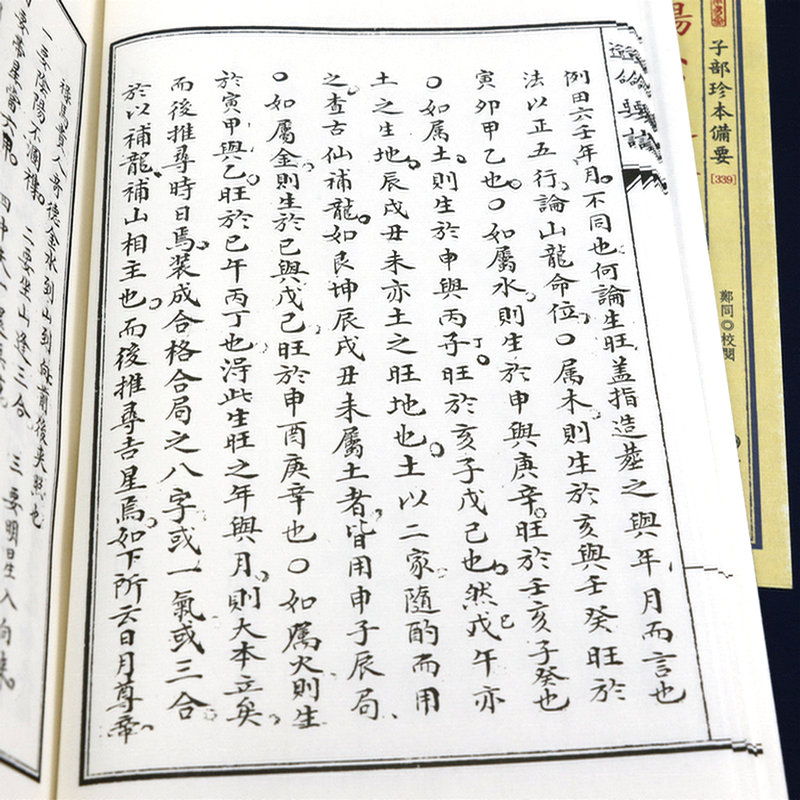 例田六壬年月。不同也何論生旺蓋指造塟之與年月而言也
法以正五行。論山龍命位。○属木。則生於亥與壬癸旺於
寅卯甲乙也。○如屬水。則生於申與庚辛。旺於壬亥子癸也
○如属土。則生於申與丙丁。旺於亥子戊己也。然戊午亦
土之生地。辰戌丑未亦土之旺地也。土以二家。隨酌而用
之。查古仙補龍。如艮坤辰戌丑未屬土者。皆用申子辰局
○如屬金。則生於巳與戊己。旺於申酉庚辛也○如屬火則生
於寅甲與乙。旺於巳午丙丁也淂此生旺之年與月。則大本立矣
而後推尋時日焉。裝成合格合局之八字。或一氣或三合
於以補龍。補山相主也。而後推尋吉星焉。如下所云日月尊帝
禄馬貴人
到山到向
前後夾照也
一要陰陽不
二要坐山逢三合
三要明星入向
子部珍本備要
[339]
鄭同◎校閱